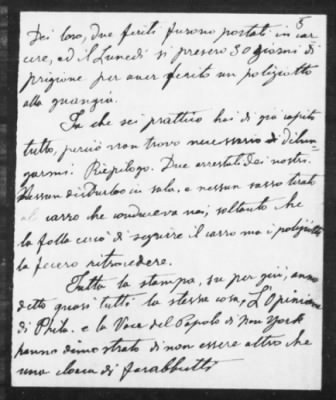 5
Dei loro, due feriti furono portati in car
cere, ed il Lunedì si presero 30 giorni di
prigione per aver ferito un poliziotto
alla guangia.
Tu che sei prattico hai di già capito
tutto, perciò non trovo necessario di dilun
garmi. Riepilogo. Due arrestati dei nostri.
Nessun disturbo in sala, e nessun sasso tirato
al carro che conduceva noi, soltanto che
la folla cercò di seguire il carro ma i poliziotti
la fecero retrocedere.
Tutta la stampa, su per giù, anno
detto quasi tutti la stessa cosa, L'Opinione
di Phila. e la Voce del Popolo di New York
hanno dimostrato di non essere altro che
una cloaca di farabbutti